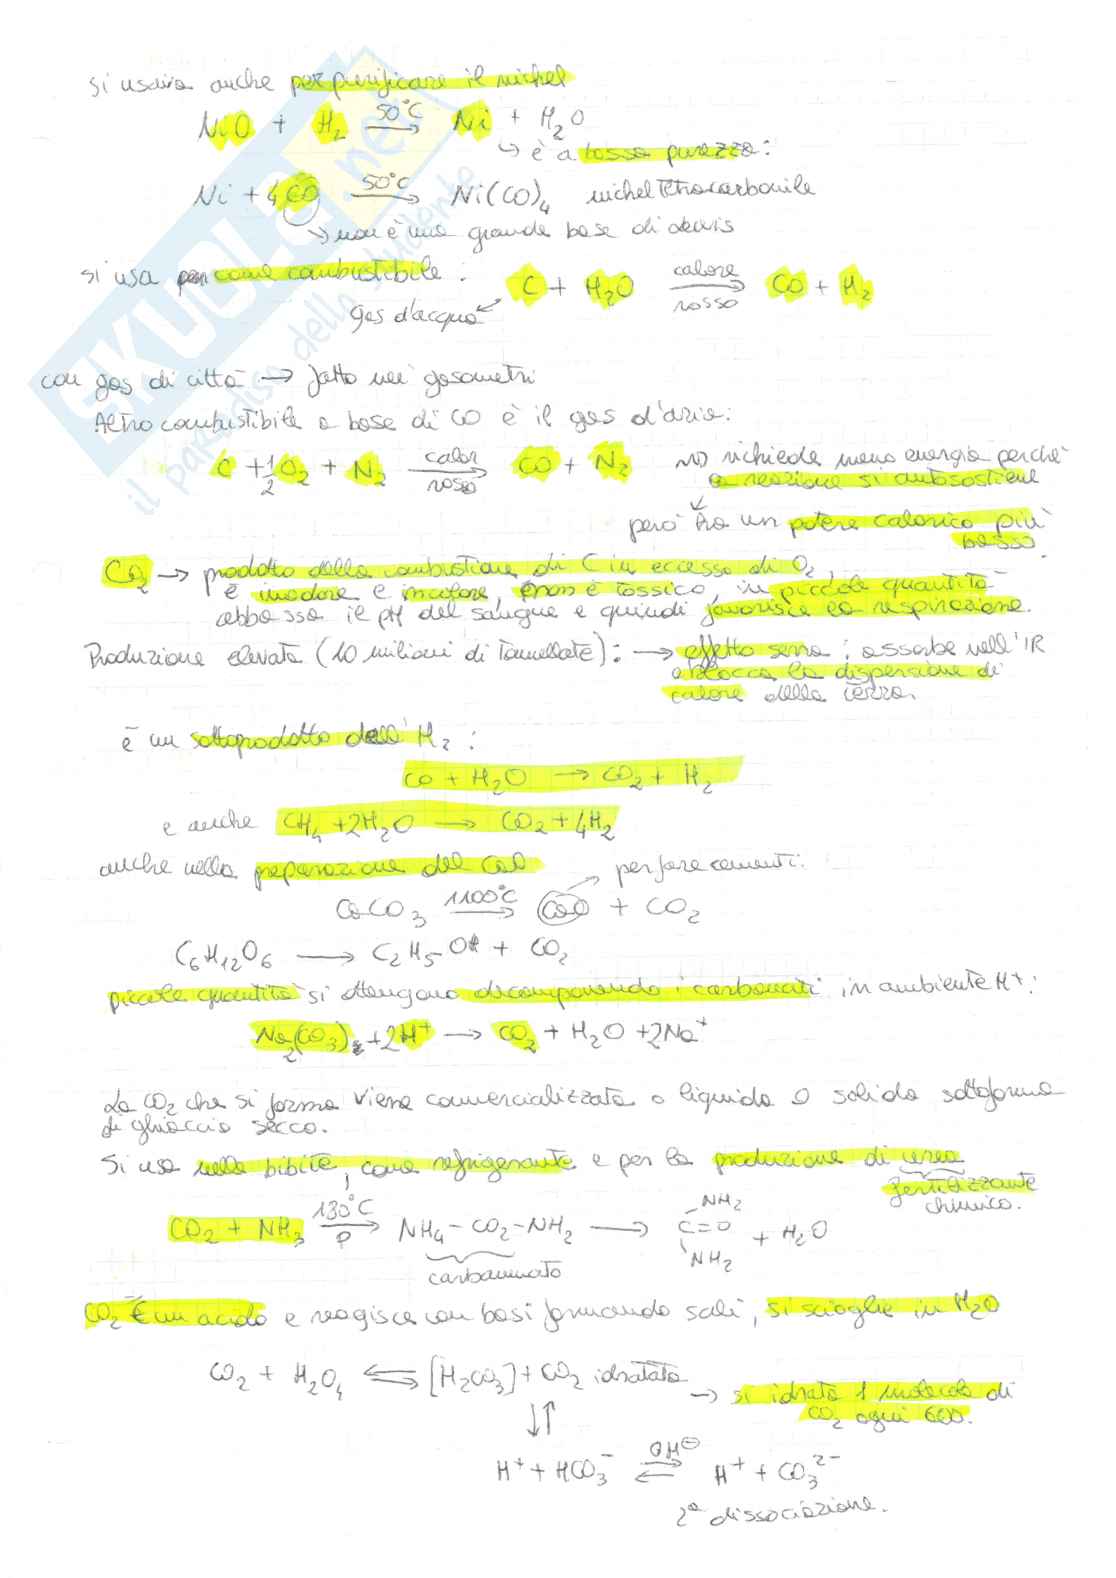 si usava anche per purificare il nichel
NiO + H2 50°C → Ni + H2O
↳ è a bassa purezza:
Ni + 4CO 50°C → Ni(CO)4 nichel tetracarbonile
↳ non è una grande base di Lewis
si usa come combustibile :
C + H2O calore rosso → CO + H2
gas d'acqua
con gas di città → fatto nei gasometri
Altro combustibile a base di CO è il gas d'aria:
C + 1/2 O2 + N2 calor rosso → CO + N2 ⇝ richiede meno energia perché
la reazione si autosostiene
però ha un potere calorico più
basso.
CO2 → prodotto della combustione di C in eccesso di O2,
è inodore e incolore, non è tossico, in piccole quantità
abbassa il pH del sangue e quindi favorisce la respirazione.
Produzione elevata (10 milioni di tonnellate): → effetto serra: assorbe nell'IR
e blocca la dispersione di
calore della terra.
è un sottoprodotto dell'H2 :
CO + H2O → CO2 + H2
e anche CH4 + 2H2O → CO2 + 4H2
anche nella preparazione del CaO → per fare cementi.
CaCO3 1100°C → CaO + CO2
C6H12O6 → C2H5-OH + CO2
piccole quantità si ottengono decomponendo i carbonati in ambiente H+:
Na2(CO3)2 + 2H+ → CO2 + H2O + 2Na+
La CO2 che si forma viene commercializzata o liquida o solida sottoforma
di ghiaccio secco.
Si usa nelle bibite, come refrigerante e per la produzione di urea
fertilizzante
chimico.
CO2 + NH3 130°C P → NH4-CO2-NH2 → NH2 C=O NH2 + H2O
carbammato
CO2 È un acido e reagisce con basi formando sali, si scioglie in H2O
CO2 + H2O4 ⇌ [H2CO3] + CO2 idratata
→ si idrata 1 molecola di
CO2 ogni 600.
↓↑
H+ + HCO3- OH⊖ ⇌ H+ + CO3 2-
2ª dissociazione.
SKUOLA.net
il paradiso dello studente